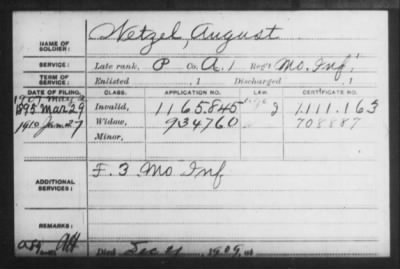 NAME OF SOLDIER: Netzel, August
SERVICE: Late rank, P Co. A. 1 Reg't Mo. Inf.
TERM OF SERVICE: Enlisted , 1 Discharged , 1
DATE OF FILING. CLASS. APPLICATION NO. LAW. CERTIFICATE NO.
1895 Mar 29 Invalid, 1165.845 1.111.163
1910 Jan 27 Widow, 934760 708887
Minor,
ADDITIONAL SERVICES: F. 3 Mo Inf
REMARKS:
Died Dec 21, 1909, at